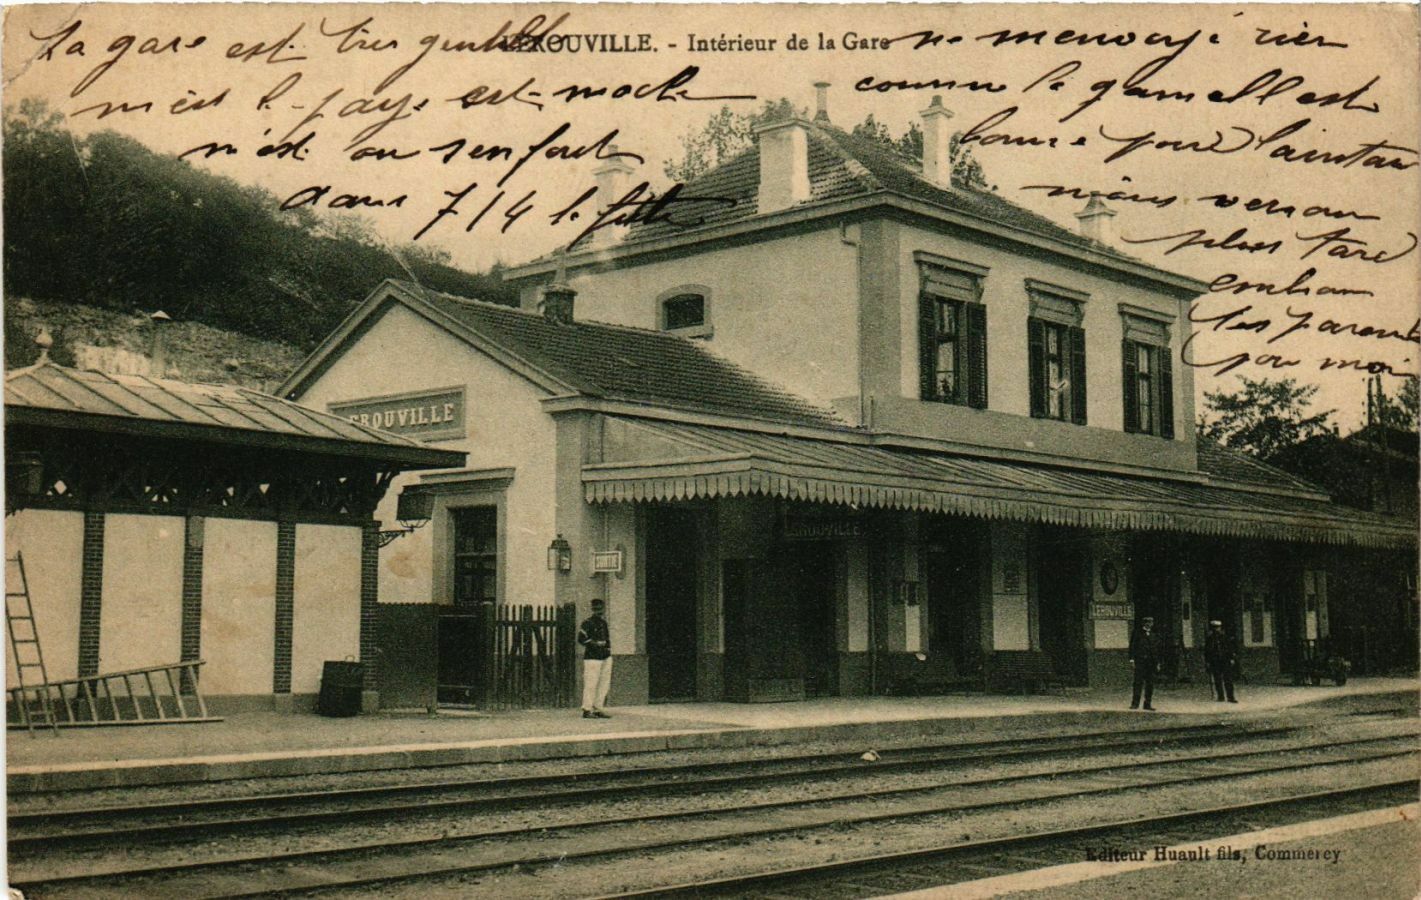 LEROUVILLE. - Intérieur de la Gare
La gare est très gentille
m'èst le paye est moche
m'èst on s'en fout
dans 7/4 le futte
ne menvoyé rien
comme le gamell est
bonne pour l'aintan
nous veron
plus tare
embras
les parent
pou moi
LEROUVILLE
LEROUVILLE
SORTIE
LEROUVILLE
Editeur Huault fils, Commercy